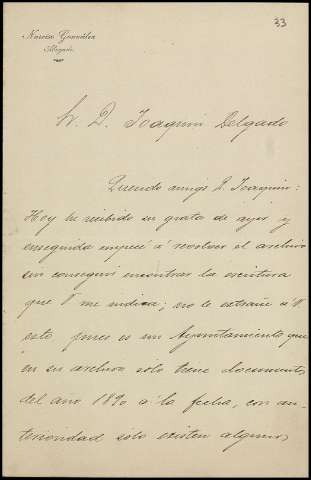 33
Narciso González
Abogado
Sr. D. Joaquin Delgado
Querido amigo D. Joaquin:
Hoy he recibido su grata de ayer y
enseguida empecé á revolver el archivo
sin conseguir encontrar la escritura
que V me indica; no le extrañe á V
esto pues es un Ayuntamiento que
en su archivo solo tiene documentos
del año 1890 á la fecha, con an-
terioridad solo existen algunos